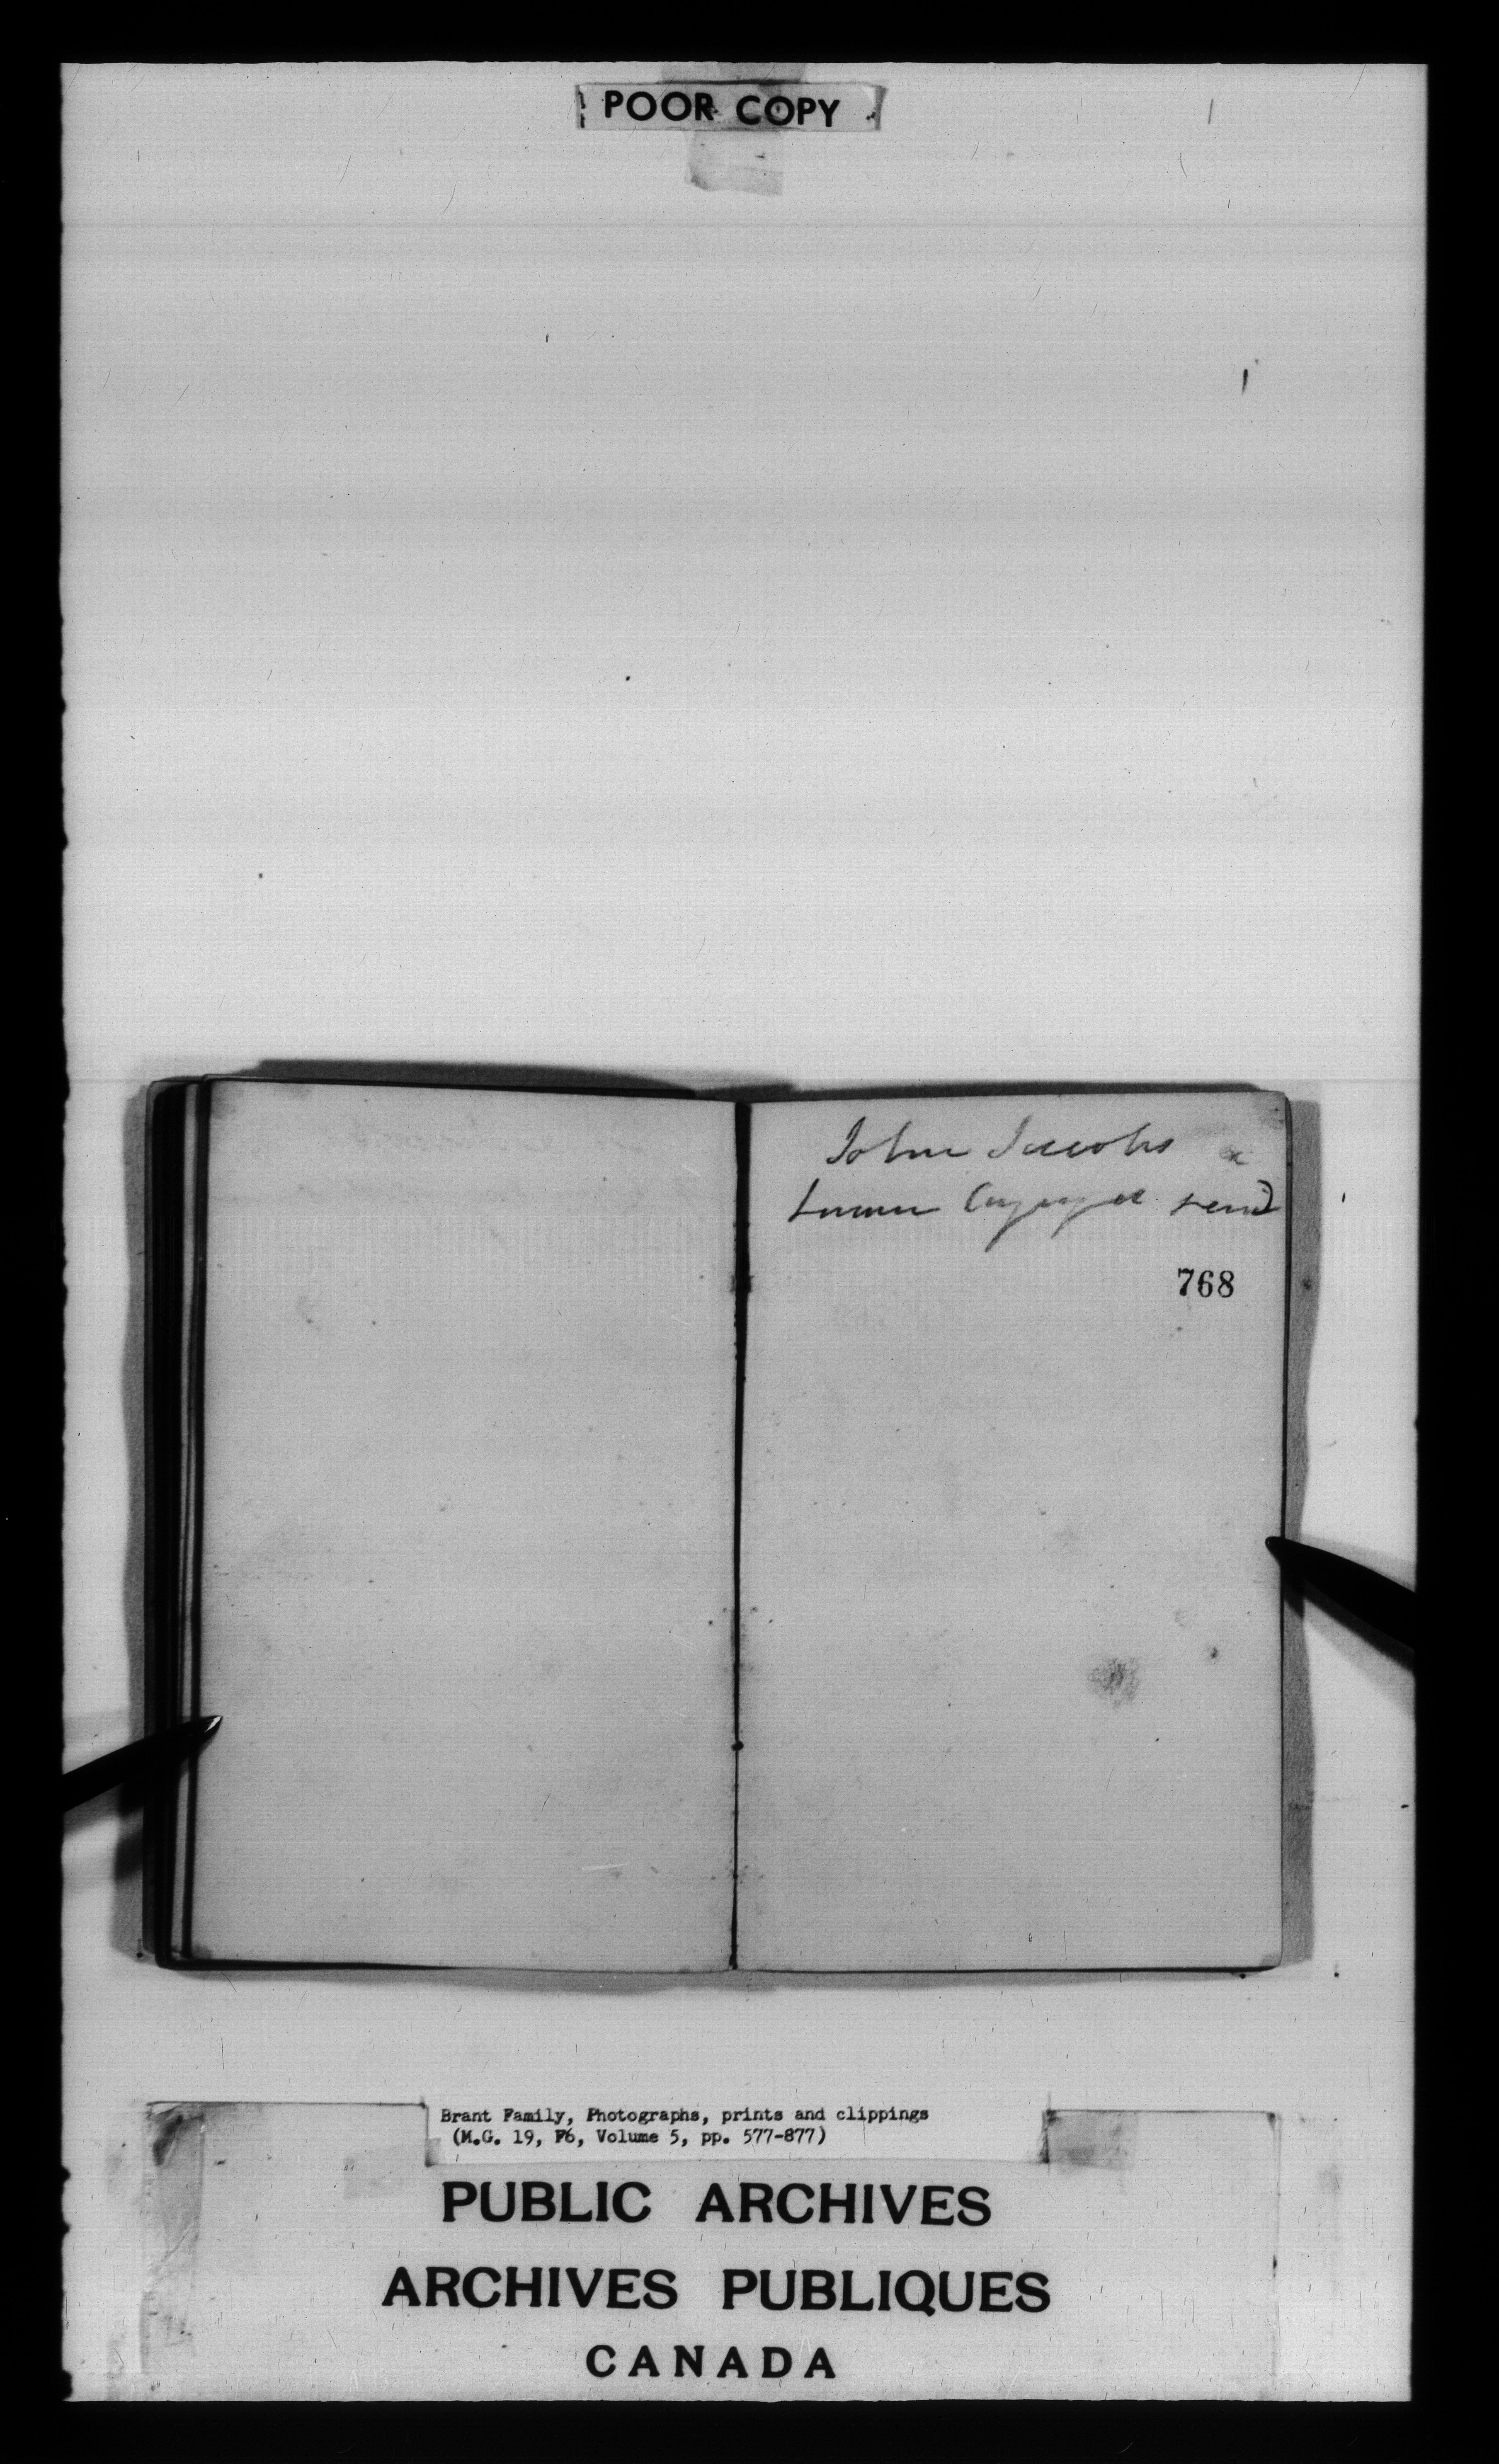 POOR COPY
John Jacobs a
Lower Cayuga
768
Brant Family, Photographs, prints and clippings
(M.G. 19, F6, Volume 5, pp. 577-877)
PUBLIC ARCHIVES
ARCHIVES PUBLIQUES
CANADA